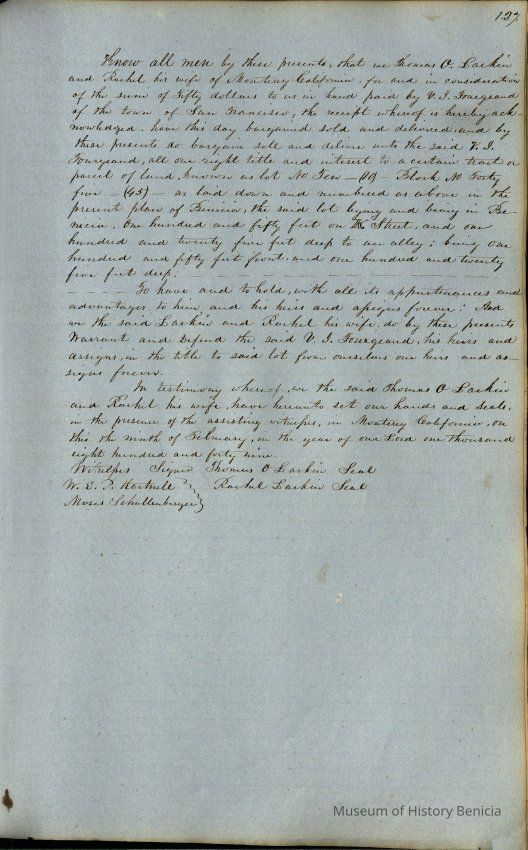 127
Know all men by these presents, that we Thomas O. Larkin
and Rachel his wife of Monterey California for and in consideration
of the sum of Fifty dollars to us in hand paid by V. J. Fourgeaud
of the town of San Francisco, the receipt whereof is hereby ack-
nowledged, have this day bargained sold and delivered and by
these presents do bargain sell and deliver unto the said V. J.
Fourgeaud, all our right title and interest to a certain tract or
parcel of land, known as lot No Ten — (10) — Block No Forty
five — (45) — as laid down and numbered as above in the
present plan of Benicia, the said lot lying and being in Be-
nicia, One hundred and fifty feet on Street, and one
hundred and twenty five feet deep to an alley; being one
hundred and fifty feet front and one hundred and twenty
five feet deep.
To have and to hold, with all its appurtenances and
advantages to him and his heirs and assigns forever: And
we the said Larkin and Rachel his wife, do by these presents
Warrant and Defend the said V. J. Fourgeaud, his heirs and
assigns, in the title to said lot from ourselves our heirs and as-
signs forever.
In testimony whereof, we the said Thomas O Larkin
and Rachel his wife, have hereunto set our hands and seals,
in the presence of the assisting witnesses, in Monterey California, on
this the ninth of February, in the year of our Lord one thousand
eight hundred and forty nine.
Witness Signed Thomas O Larkin Seal
W. E. P. Hartnell Rachel Larkin Seal
Moses Schallenberger
Museum of History Benicia